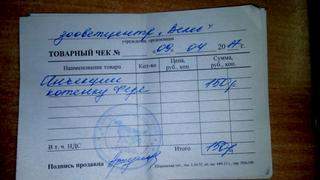 зооветцентр "Велес"
учреждение, организация
ТОВАРНЫЙ ЧЕК № 09. 04 2017 г.
Наименование товара Кол-во Цена, руб., коп. Сумма, руб., коп.
Инъекции 150р
котенку
В т. ч. НДС Итого 150р
Подпись продавца